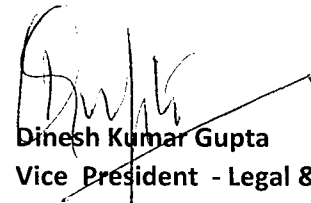 Dinesh Kumar Gupta
Vice President - Legal &